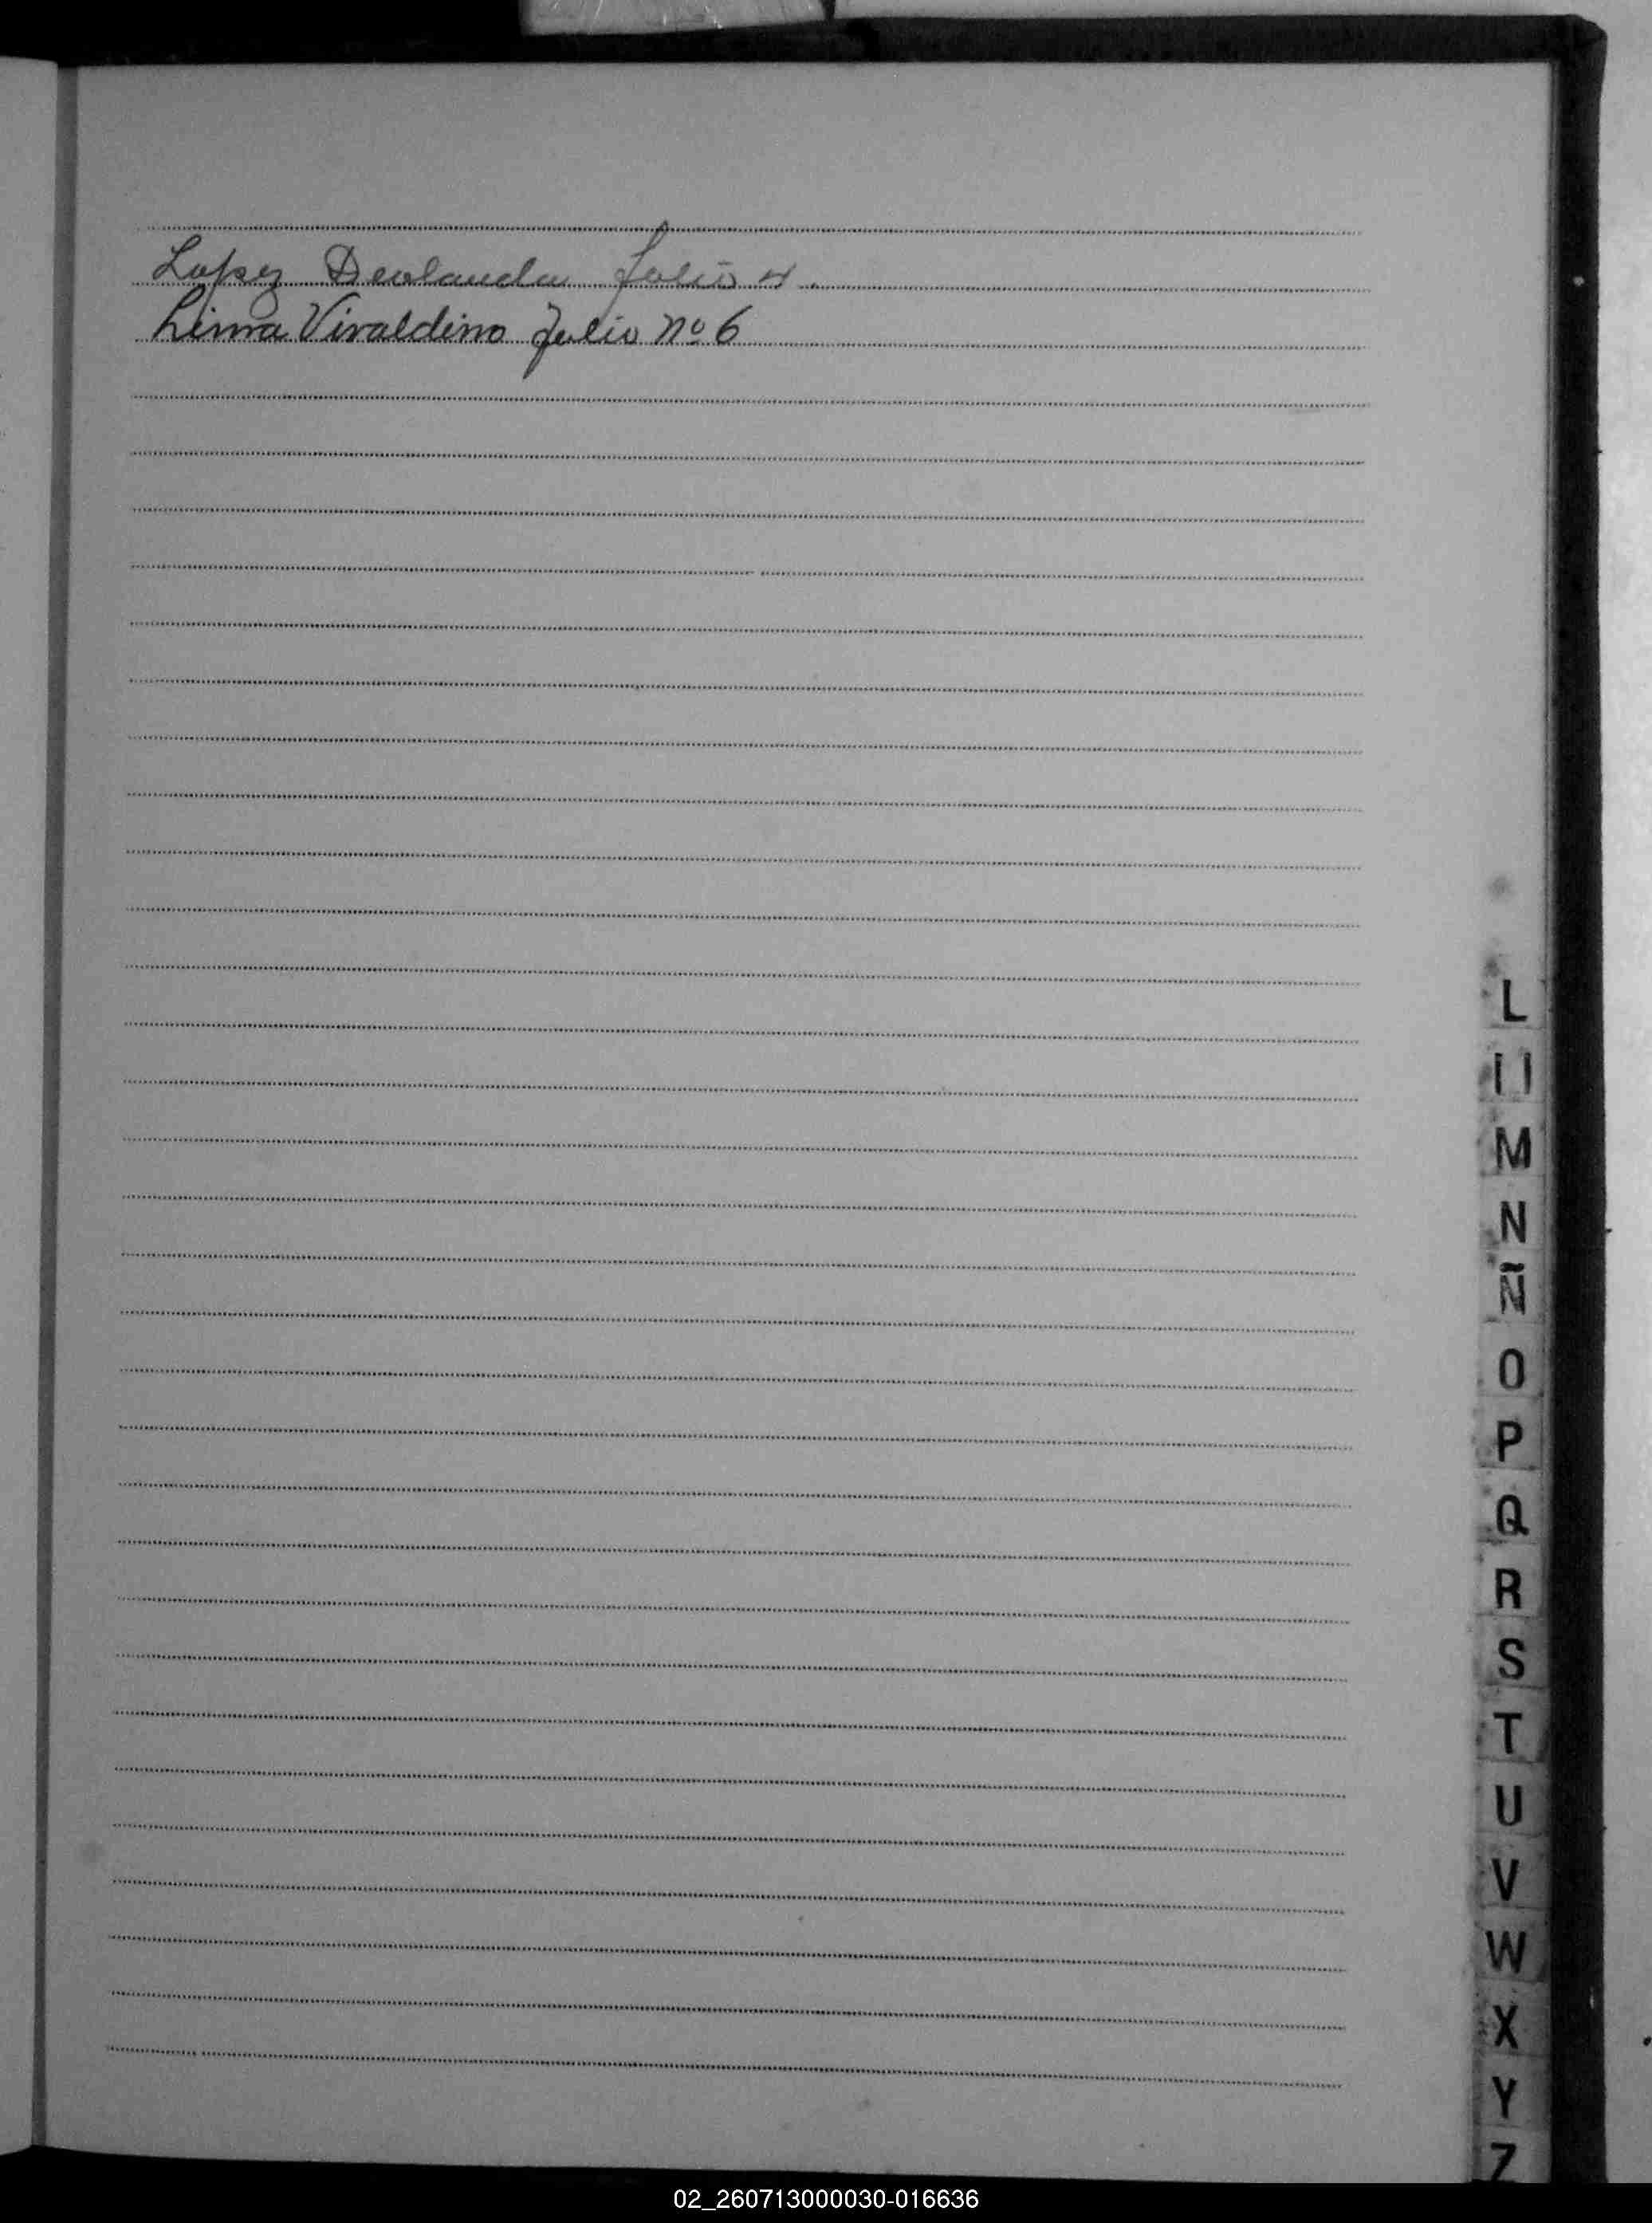 Lopez Deolanda folio 4
Lima Vivaldino Julio nº 6
L
Ll
M
N
Ñ
O
P
Q
R
S
T
U
V
W
X
Y
Z
02_260713000030-016636